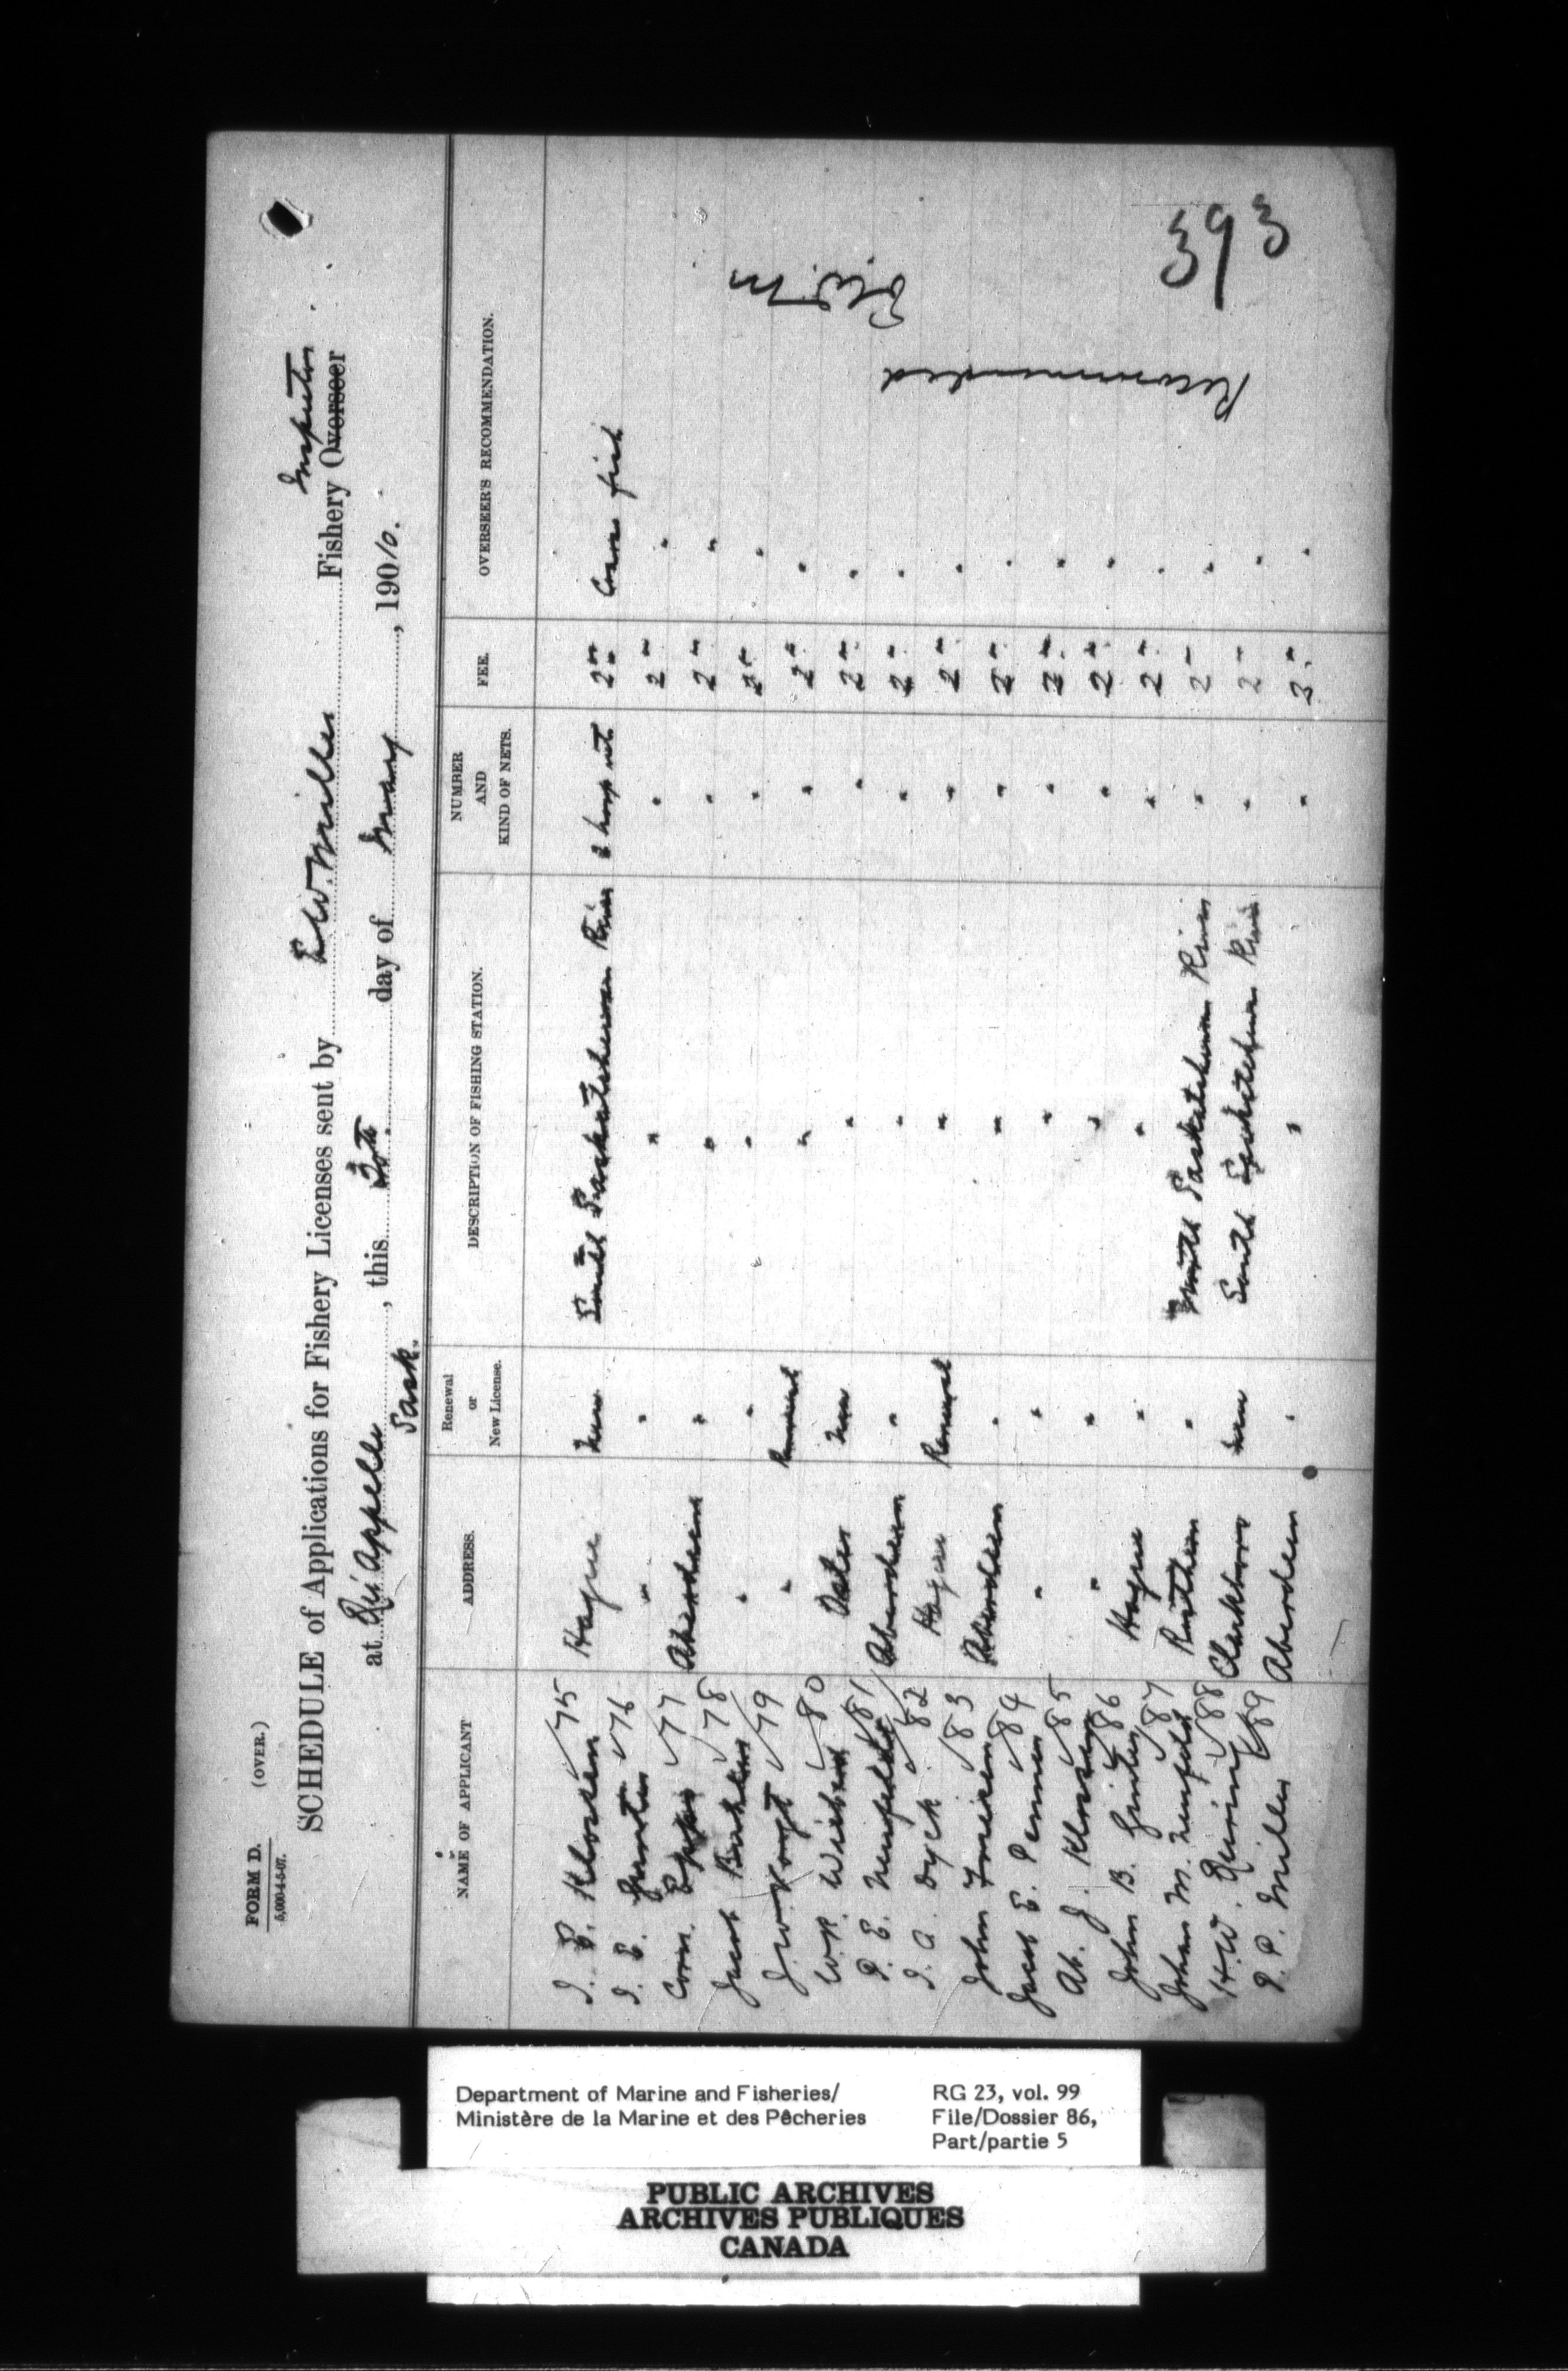 FORM D. (OVER.)
5,000-4-5-07.
SCHEDULE of Applications for Fishery Licenses sent by E W. Miller Fishery Overseer Inspector
at Qu'Appelle Sask. , this day of May , 1910.
NAME OF APPLICANT ADDRESS. Renewal or New License. DESCRIPTION OF FISHING STATION. NUMBER AND KIND OF NETS. FEE. OVERSEER'S RECOMMENDATION.
J. E. Klossen 75 Hague New South Saskatchewan River 2 hoop net 2 00 Coarse fish
J. E. 76 " " " " 2 " "
Corn. 77 Aberdeen " " " 2 " "
Jacob 78 " " " " 2 " "
J. W. Voogt 79 " Renewal " " 2 " "
W. N. Wiebe 80 Osler New " " 2 " "
P. E. Neufeldt 81 Aberdeen " " " 2 " "
J. A. Dyck 82 Hague Renewal " " 2 " "
John Friesen 83 Aberdeen " " " 2 " "
Jacob E. Penner 84 " " " " 2 " "
Ab. J. Klossen 85 " " " " 2 " "
John B. Ginter 86 Hague " " " 2 " "
Johan M. Neufeldt 87 Ruthven " North Saskatchewan River " 2 " "
H. W. 88 Clarkboro New South Saskatchewan River " 2 " "
P. P. Miller 89 Aberdeen " " " 3 " "
Recommended
E.W.M
393
Department of Marine and Fisheries/
Ministère de la Marine et des Pêcheries
RG 23, vol. 99
File/Dossier 86,
Part/partie 5
PUBLIC ARCHIVES
ARCHIVES PUBLIQUES
CANADA